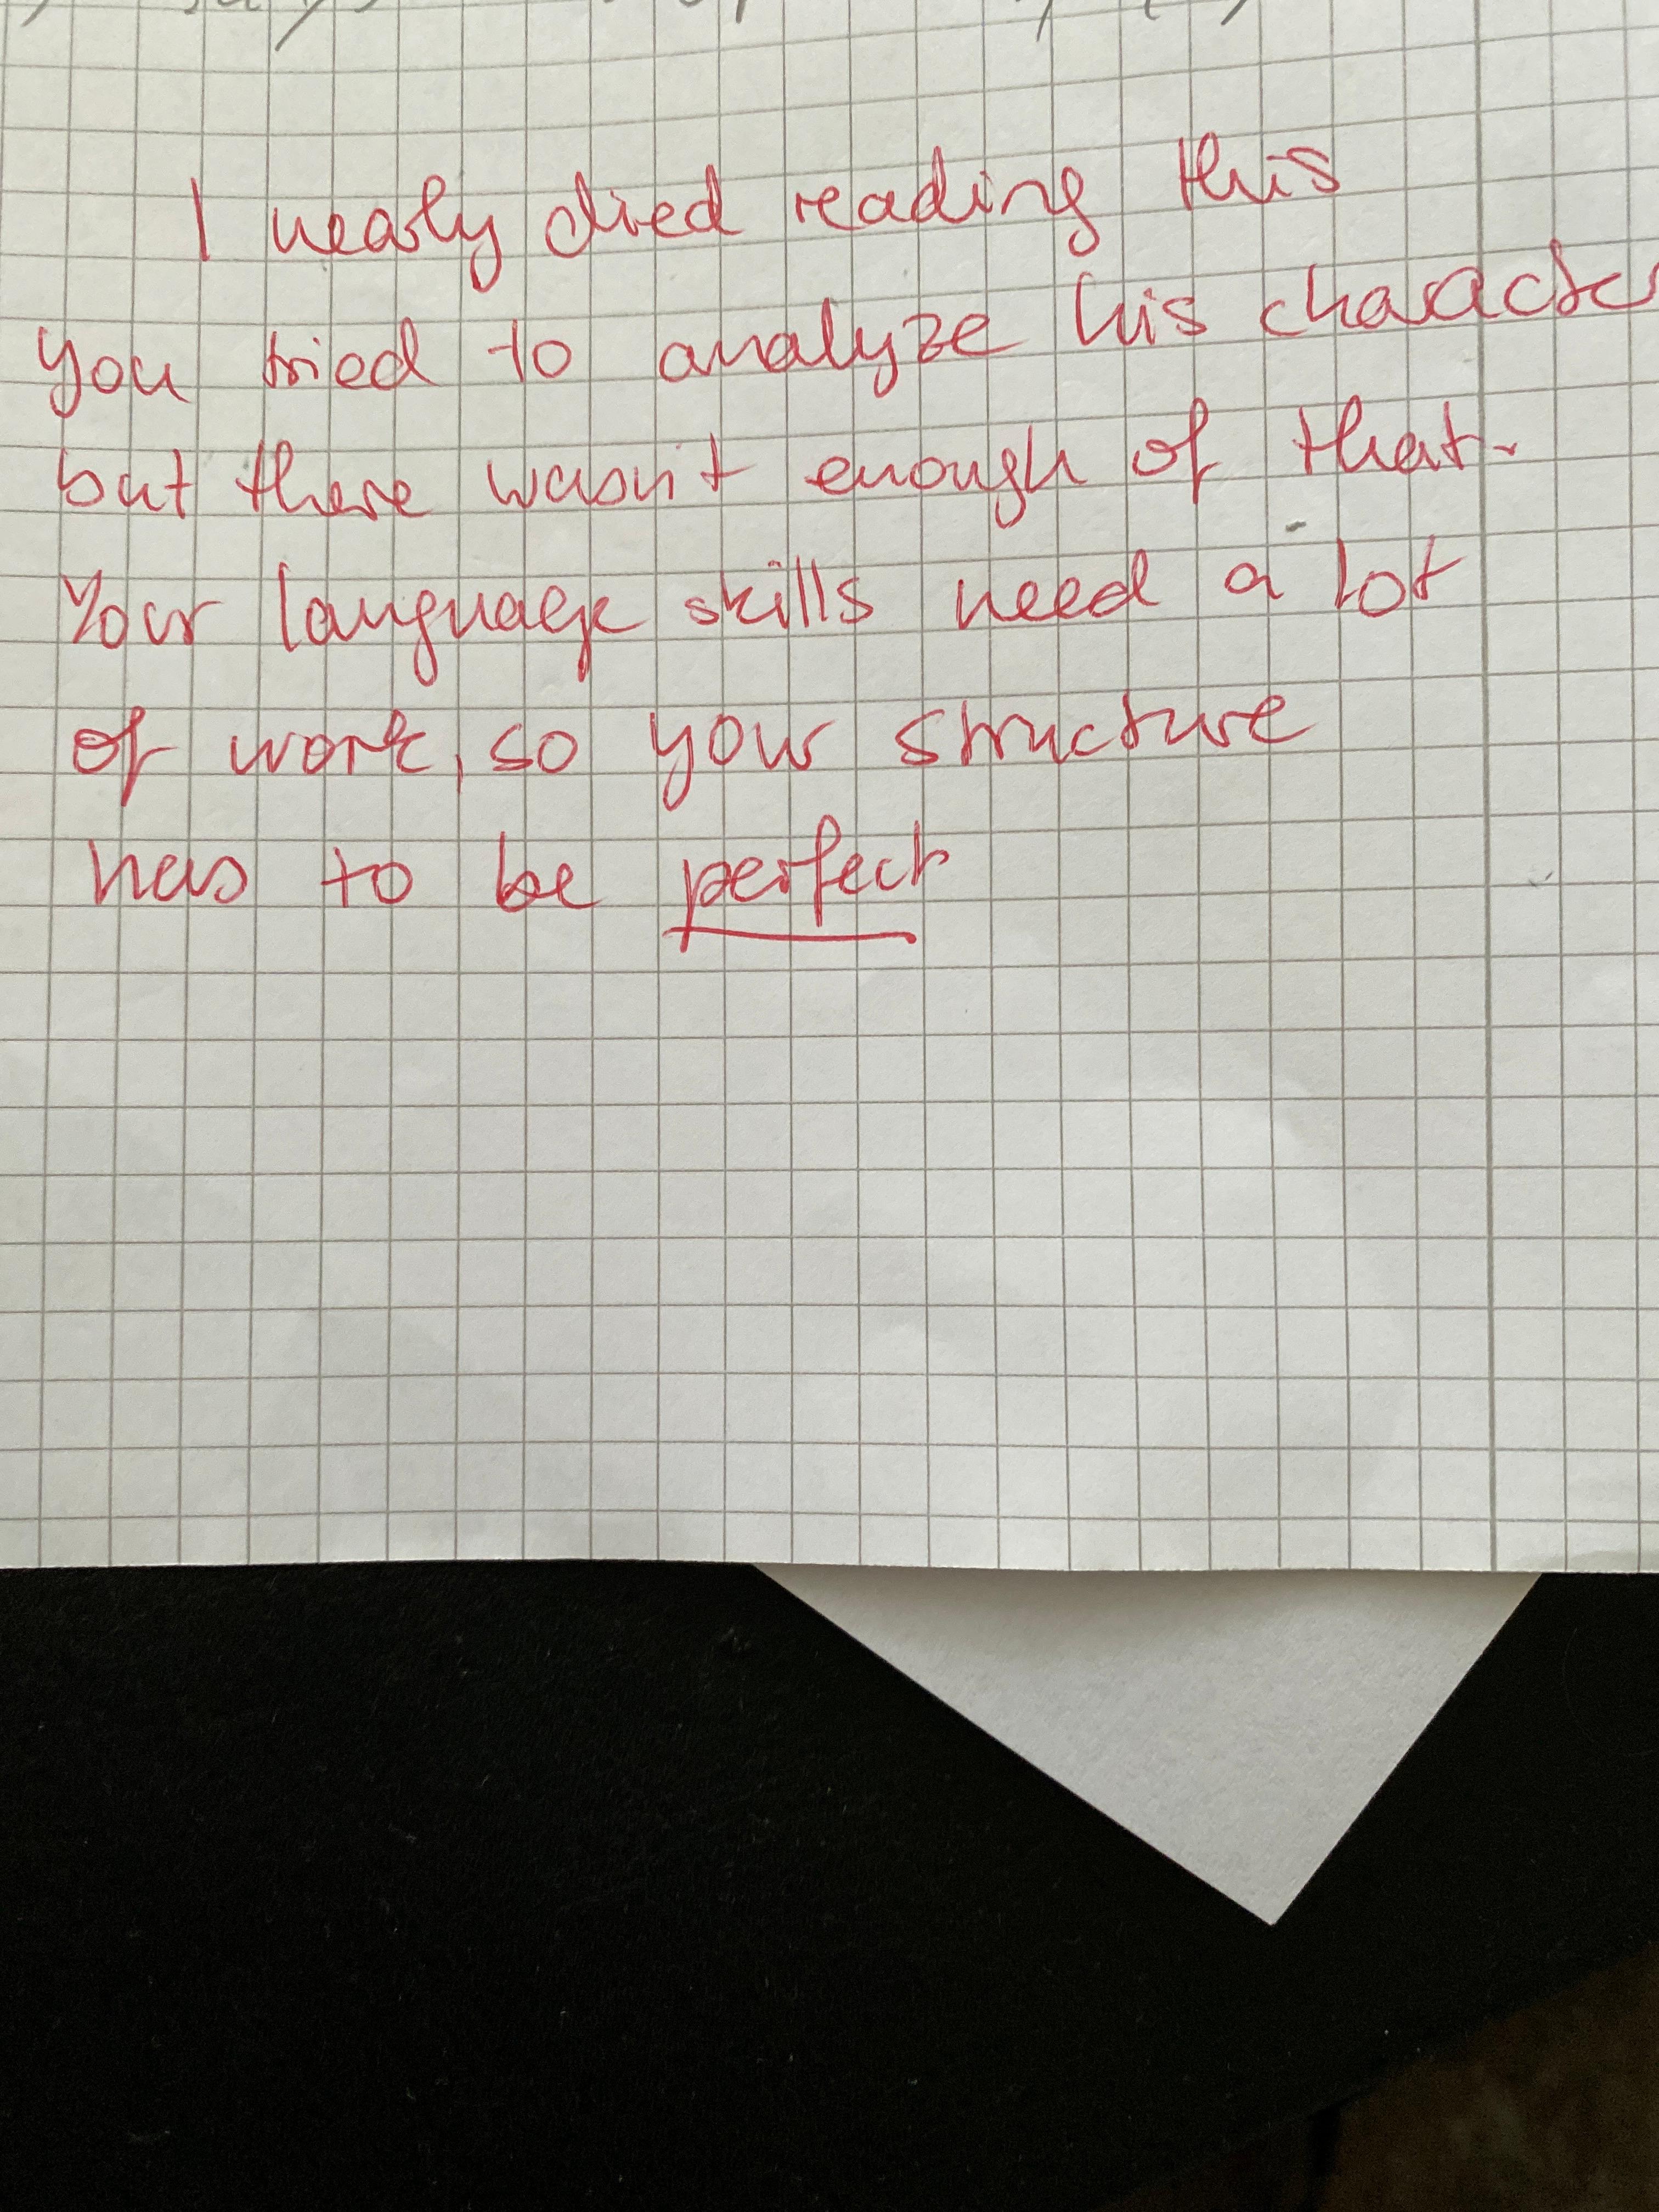 I nearly died reading this
you tried to analyze his character
but there wasn't enough of that.
Your language skills need a lot
of work, so your structure
has to be perfect